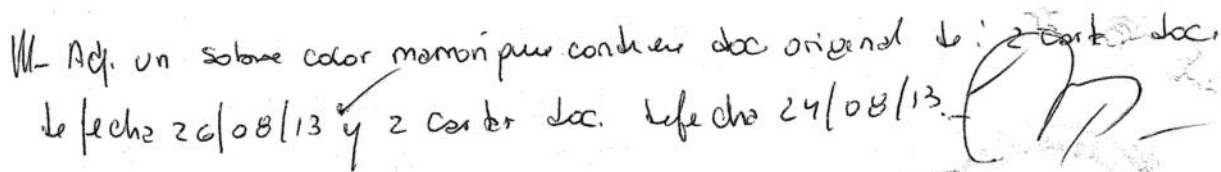 III- Adj. un sobre color marrón que contiene doc original de: 2 cartas doc.
de fecha 26/08/13 y 2 cartas doc. de fecha 24/08/13.-